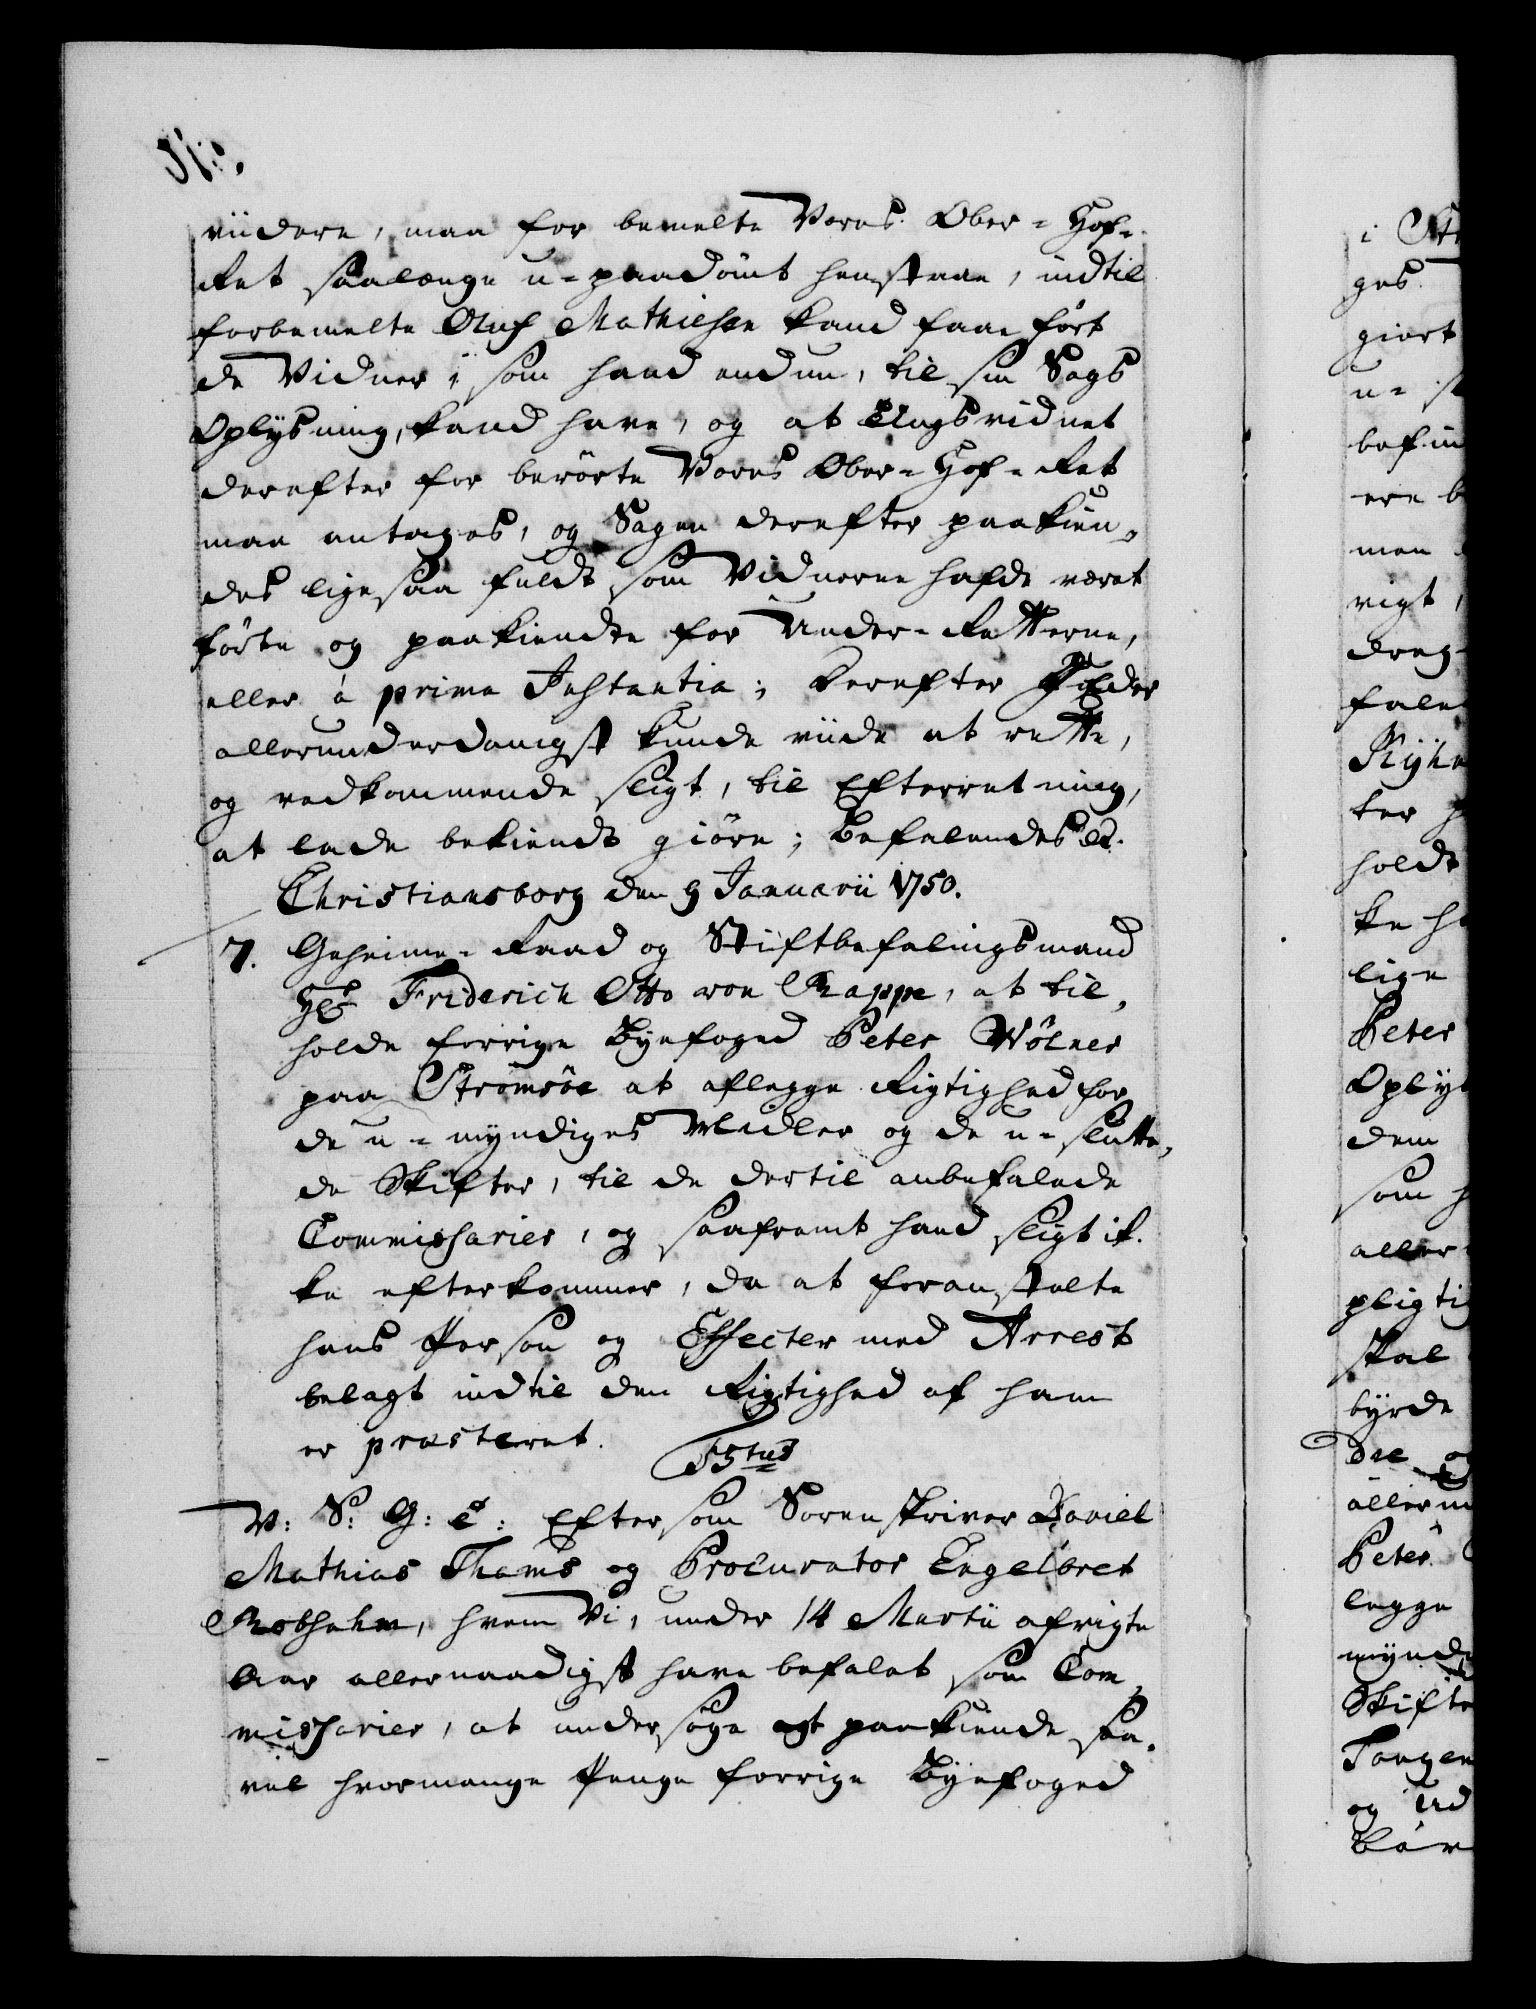 viidere, maa for bemelte Vores Ober-Hof-
Ret saalænge u-paadömt henstaae, indtil
forbemelte Oluf Mathiesen kand faae fört
de Vidner, som hand endnu, til sin Sags
Oplysning, kand have, og at Tingsvidnet
derefter for berörte Vores Ober-Hof-Ret
maa antages, og Sagen derefter paakien-
des ligesaa fuldt som Vidnerne hafde været
förte og paakiendte for Under-Retterne,
eller à prima Instantia; Derefter I Eder
allerunderdanigst kunde viide at rette,
og vedkommende sligt, til Efterretning,
at lade bekiendt giöre; Befalendes etc.
Christiansborg den 9 Januarii 1750.
7. Geheime-Raad og Stiftbefalingsmand
Hr. Friderich Otto von Rappe, at til-
holde forrige Byefoged Peter Wölner
paa Strömsöe at aflegge Rigtighed for
de u-myndiges Midler og de u-slutte-
de Skifter, til de dertil anbefalede
Commissarier, og saafremt hand sligt ik-
ke efterkommer, da at foranstalte
hans Person og Effecter med Arrest
belagt indtil den Rigtighed af ham
er præsteret.
F5tus
V: S: G: T: Eftersom Sorenskriver Daniel
Mathias Thams og Procurator Engelbret
Robsahm, hvem Vi, under 14 Martii afvigte
Aar allernaadigst have befalet som Com-
missarier, at undersöge og paakiende saa-
vel hvormange Penge forrige Byefoged
i St
ges
giort
u-
befin
ere b
men
rigt,
dreg
falet
Ryhe
ter
holdt
ke
lige
Peter
Oplyt
dem
som h
aller
pligtig
skal
byrde
die og
allerun
Peter
legge
mynd
Skifte
Tangen
og Ud